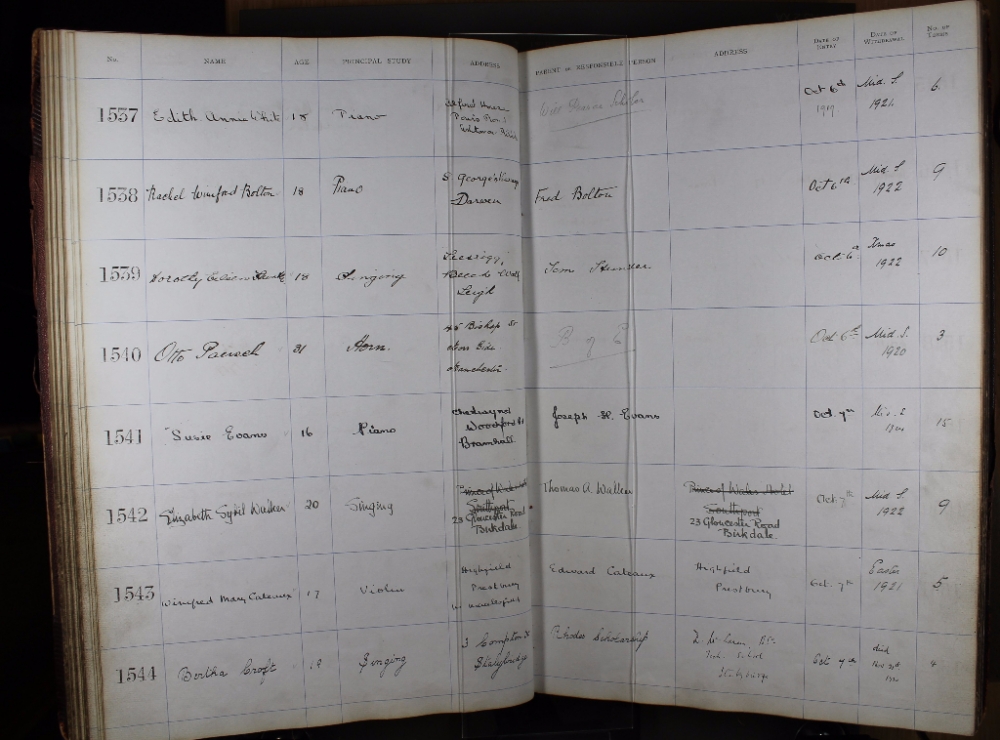 No. NAME AGE PRINCIPAL STUDY ADDRESS PARENT OR RESPONSIBLE PERSON ADDRESS DATE OF ENTRY DATE OF WITHDRAWAL NO. OF TERMS
1537 Edith Annie 18 Piano
Oct 6th 1919 Mid. S. 6
1538 Rachel Winifred Bolton 18 Piano St George's
Darwen
Fred Bolton Oct 6th Mid. S. 1922 9
1539 Dorothy Eileen 18 Singing
Leigh
Tom Oct 6th Xmas 1922 10
1540 Otto Paersch 21 Horn. Bishop St
Manchester.
Oct 6th Mid. S. 1920 3
1541 Susie Evans 16 Piano
Woodford Rd
Bramhall.
Joseph H. Evans Oct. 7th 15
1542 Elizabeth Sybil Walker 20 Singing Prince of Wales Hotel
Southport
23 Gloucester Road
Birkdale.
Thomas A. Walker Prince of Wales Hotel
Southport
23 Gloucester Road
Birkdale.
Oct. 7th Mid S. 1922 9
1543 Winifred Mary Cateaux 17 Violin Highfield
Prestbury
Nr Macclesfield
Edward Cateaux Highfield
Prestbury
Oct. 7th Easter 1921 5
1544 Bertha Croft 19 Singing 3 Compton St
Stalybridge
Rhodes Scholarship
Stalybridge
Oct 7th died 4